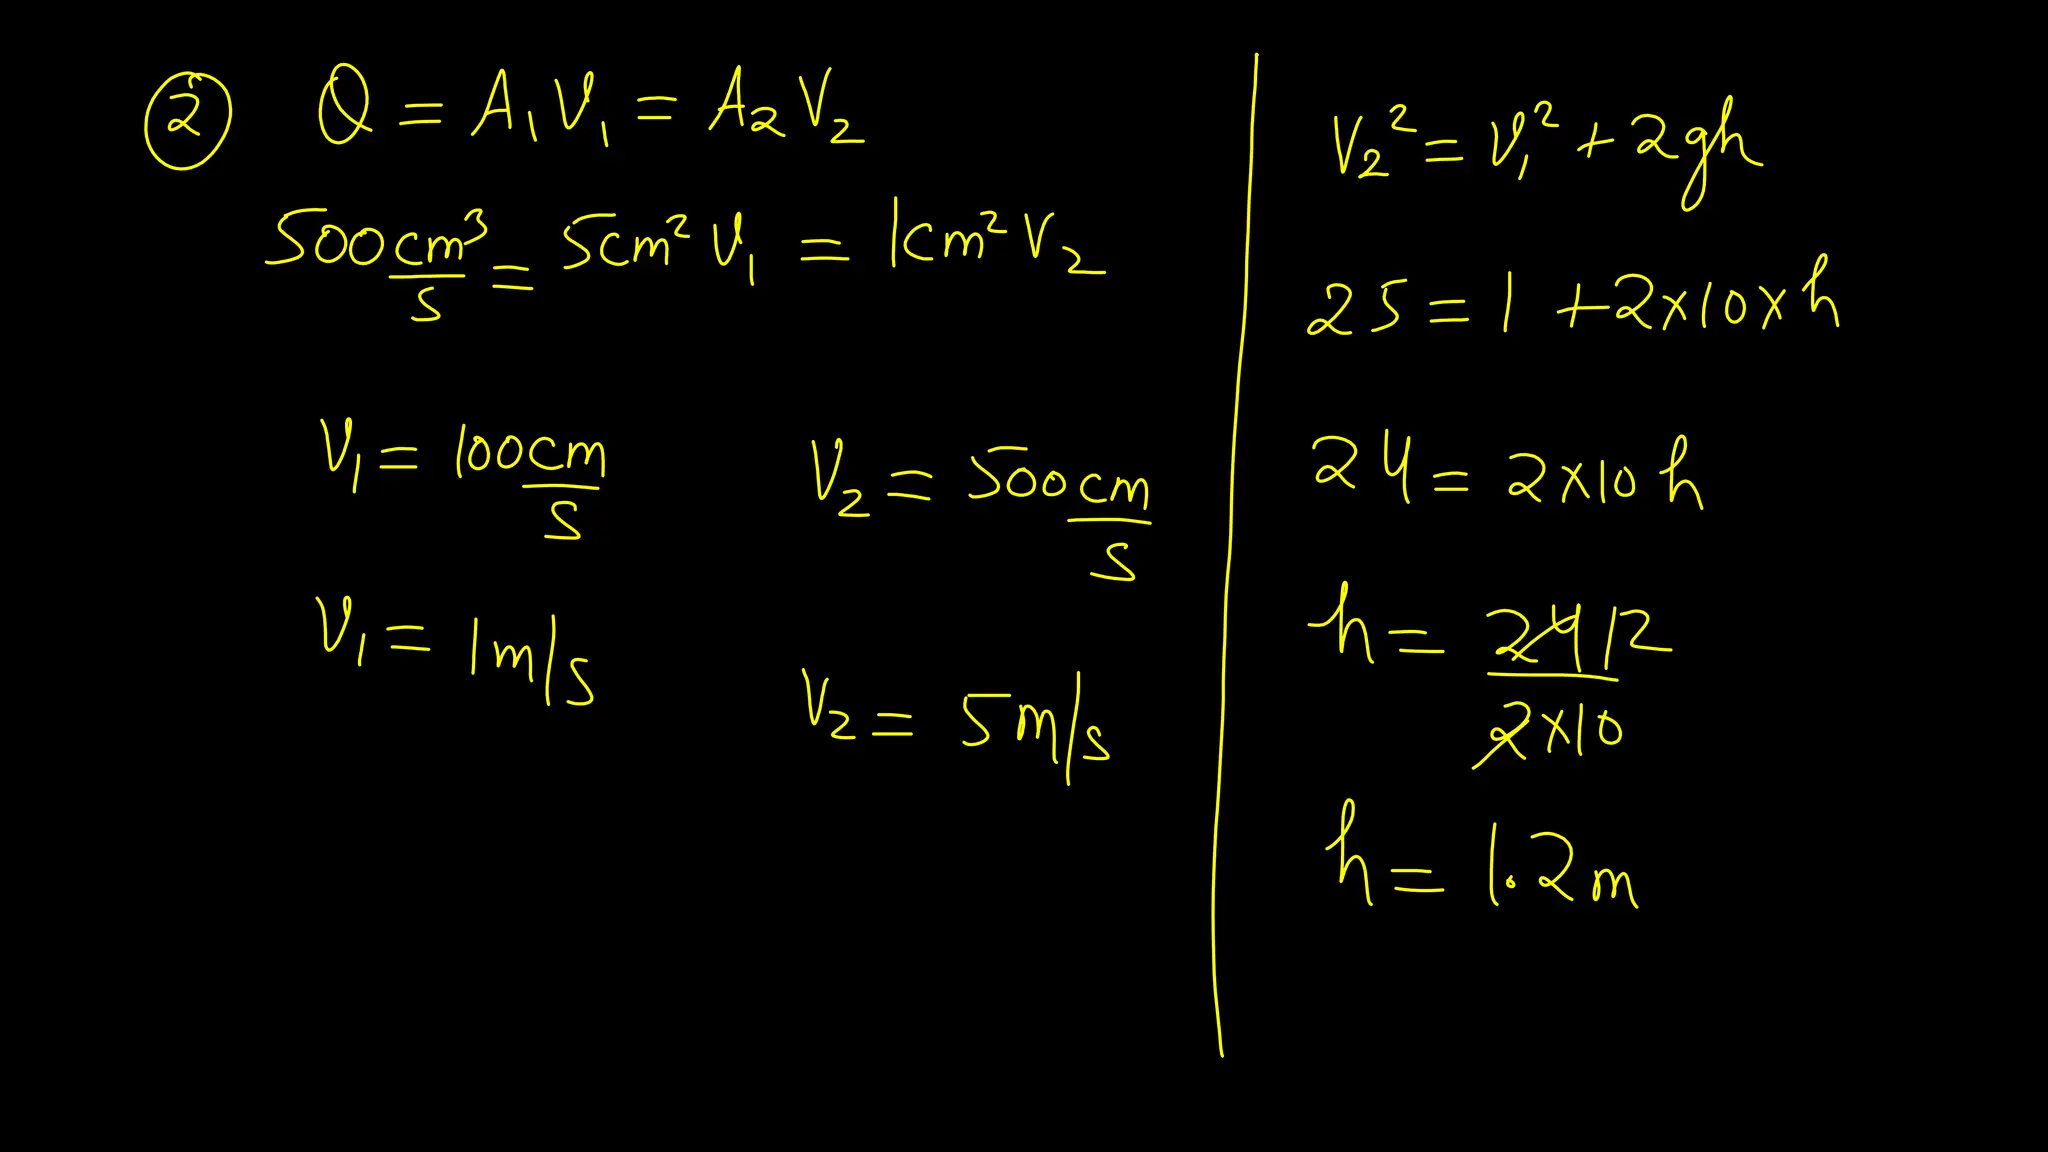 ② Q = A₁V₁ = A₂V₂
500 cm³/s = 5cm² V₁ = 1cm² V₂
V₁ = 100 cm/s
V₂ = 500 cm/s
V₁ = 1m/s
V₂ = 5m/s
V₂² = V₁² + 2gh
25 = 1 + 2×10×h
24 = 2×10 h
h = 24 12 / 2×10
h = 1.2m